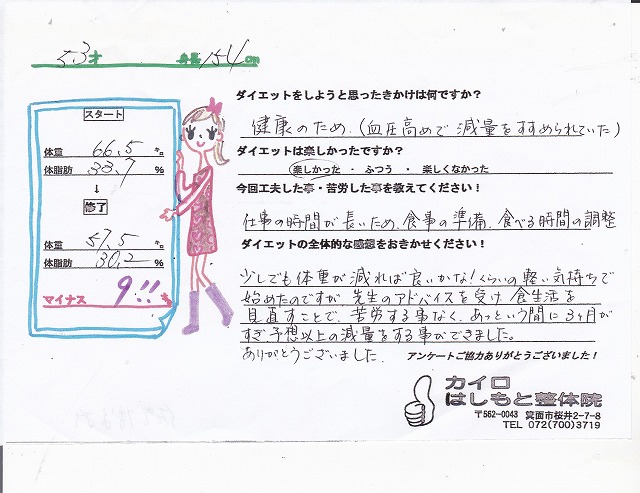 53才 身長 154cm
スタート
体重 66.5 ㌔
体脂肪 33.7 %
↓
終了
体重 57.5 ㌔
体脂肪 30.2 %
マイナス 9!!
ダイエットをしようと思ったきかけは何ですか？
健康のため.(血圧高めで減量をすすめられていた)
ダイエットは楽しかったですか？
楽しかった ・ ふつう ・ 楽しくなかった
今回工夫した事・苦労した事を教えてください！
仕事の時間が長いため、食事の準備、食べる時間の調整
ダイエットの全体的な感想をおきかせください！
少しでも体重が減れば良いかな!くらいの軽い気持ちで
始めたのですが、先生のアドバイスを受け、食生活を
見直すことで、苦労する事なく、あっという間に3ヶ月が
すぎ予想以上の減量をする事ができました。
ありがとうございました.
アンケートご協力ありがとうございました！
カイロ
はしもと整体院
〒562-0043 箕面市桜井2-7-8
TEL 072(700)3719